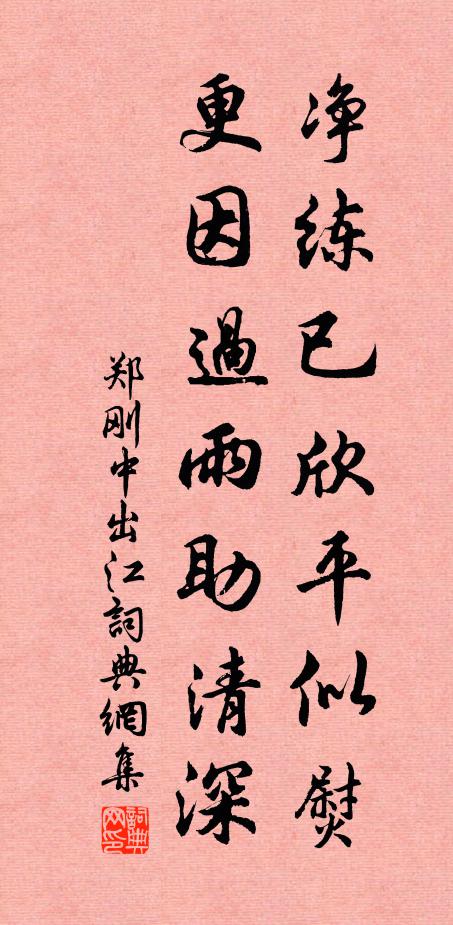 净练已欣平似熨
更因過雨助清深
郑刚中出江詞典網集
詞典
网印